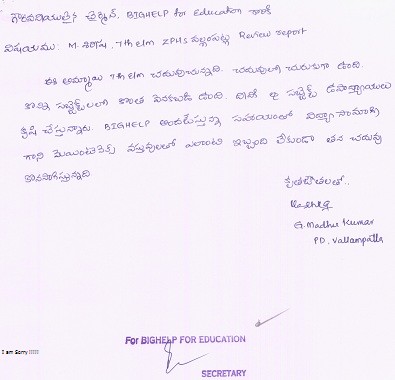 గౌరవనీయులైన చైర్మన్, BIGHELP for Education వారికి
విషయము: M. శిరీష, 7th clm ZPHS వల్లంపట్ల Review report
ఈ అమ్మాయి 7th clm చదువుచున్నది. చదువులో చురుకుగా ఉంది.
కొన్ని సబ్జెక్ట్ లలో కొంత వెనకబడి ఉంది. దానికై సబ్జెక్ట్ ఉపాధ్యాయులు
కృషి చేస్తున్నారు. BIGHELP అందజేస్తున్న సహాయంతో విద్యా సామాగ్రి
గాని మెయింటెనెన్స్ వస్తువులలో ఎలాంటి ఇబ్బంది లేకుండా తన చదువు
కొనసాగిస్తున్నది
కృతజ్ఞతలతో..
G. Madhu Kumar
PD. Vallampatla
For BIGHELP FOR EDUCATION
I am Sorry !!!!!
SECRETARY